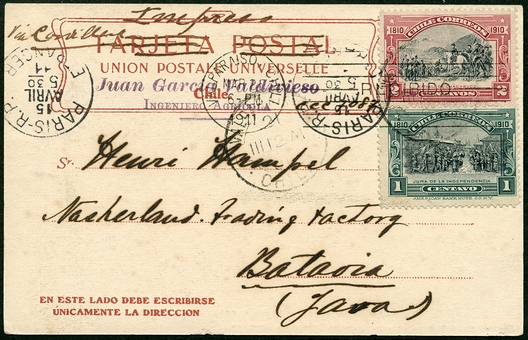 Impreso
Via Cordillera
TARJETA POSTAL
UNION POSTALE UNIVERSELLE
Juan Garcia Valdivieso
Chile
INGENIERO
PARIS-R.P.
ETRANGER
15
AVRIL
5 30
11
PARIS-R.P.
AVRIL
5 30
VALPARAISO
1810 CHILE CORREOS 1910
2 CENTAVOS 2
1810 CHILE CORREOS 1910
JURA DE LA INDEPENDENCIA
1 CENTAVO 1
AMERICAN BANK NOTE CO. N.Y.
Sr. Henri Hampel
Nasherland. Trading Factorg
Batavia
(Java)
EN ESTE LADO DEBE ESCRIBIRSE
ÚNICAMENTE LA DIRECCION